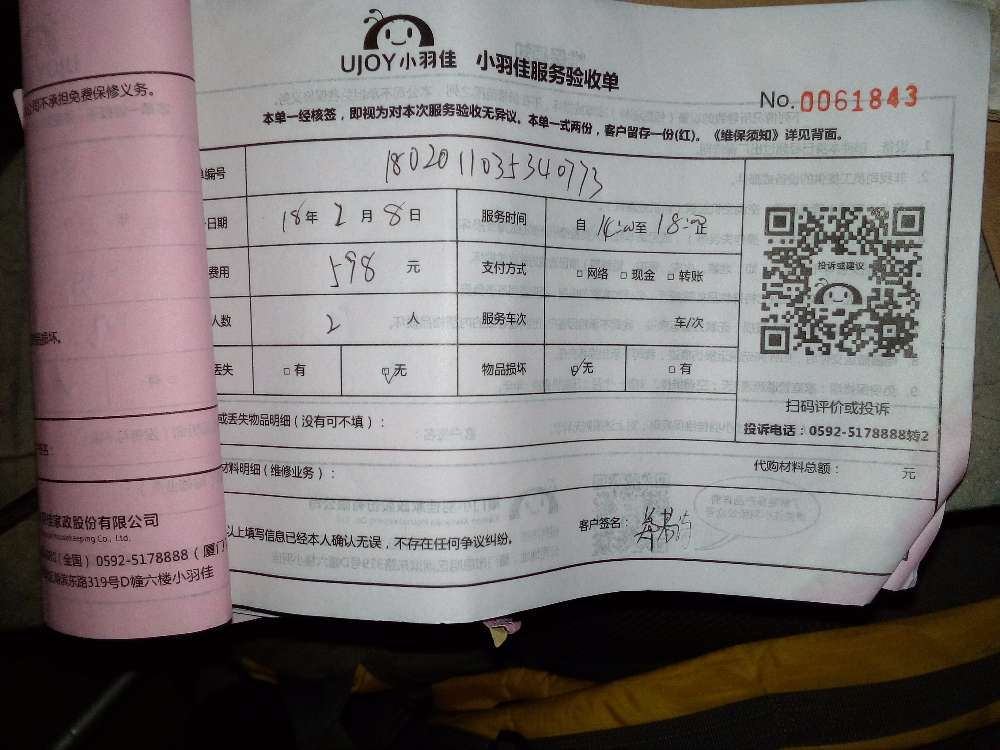 UJOY小羽佳 小羽佳服务验收单
No.0061843
本单一经核签，即视为对本次服务验收无异议。本单一式两份，客户留存一份(红)。《维保须知》详见背面。
编号 1802011035340773
日期 18年2月8日 服务时间 自14:00至18:00止
费用 598 元 支付方式 □网络 □现金 □转账
人数 2 人 服务车次 车/次
丢失 □有 ☑无 物品损坏 ☑无 □有
投诉或建议
扫码评价或投诉
投诉电话：0592-5178888转2
或丢失物品明细（没有可不填）：
材料明细（维修业务）： 代购材料总额： 元
以上填写信息已经本人确认无误，不存在任何争议纠纷。 客户签名：
公司不承担免费保修义务。
损坏。
佳家政股份有限公司
keeping Co., Ltd.
（全国）0592-5178888（厦门
滨东路319号D幢六楼小羽佳